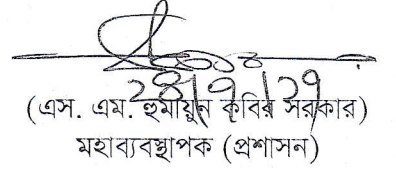 ২৪/৭/১৭
(এস. এম. হুমায়ুন কবির সরকার)
মহাব্যবস্থাপক (প্রশাসন)